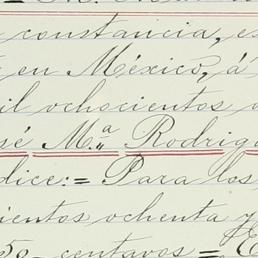 constancia, es
en México, á
il ochocientos
sé M.ª Rodrig
dice:= Para los
ientos ochenta y
50 centavos =